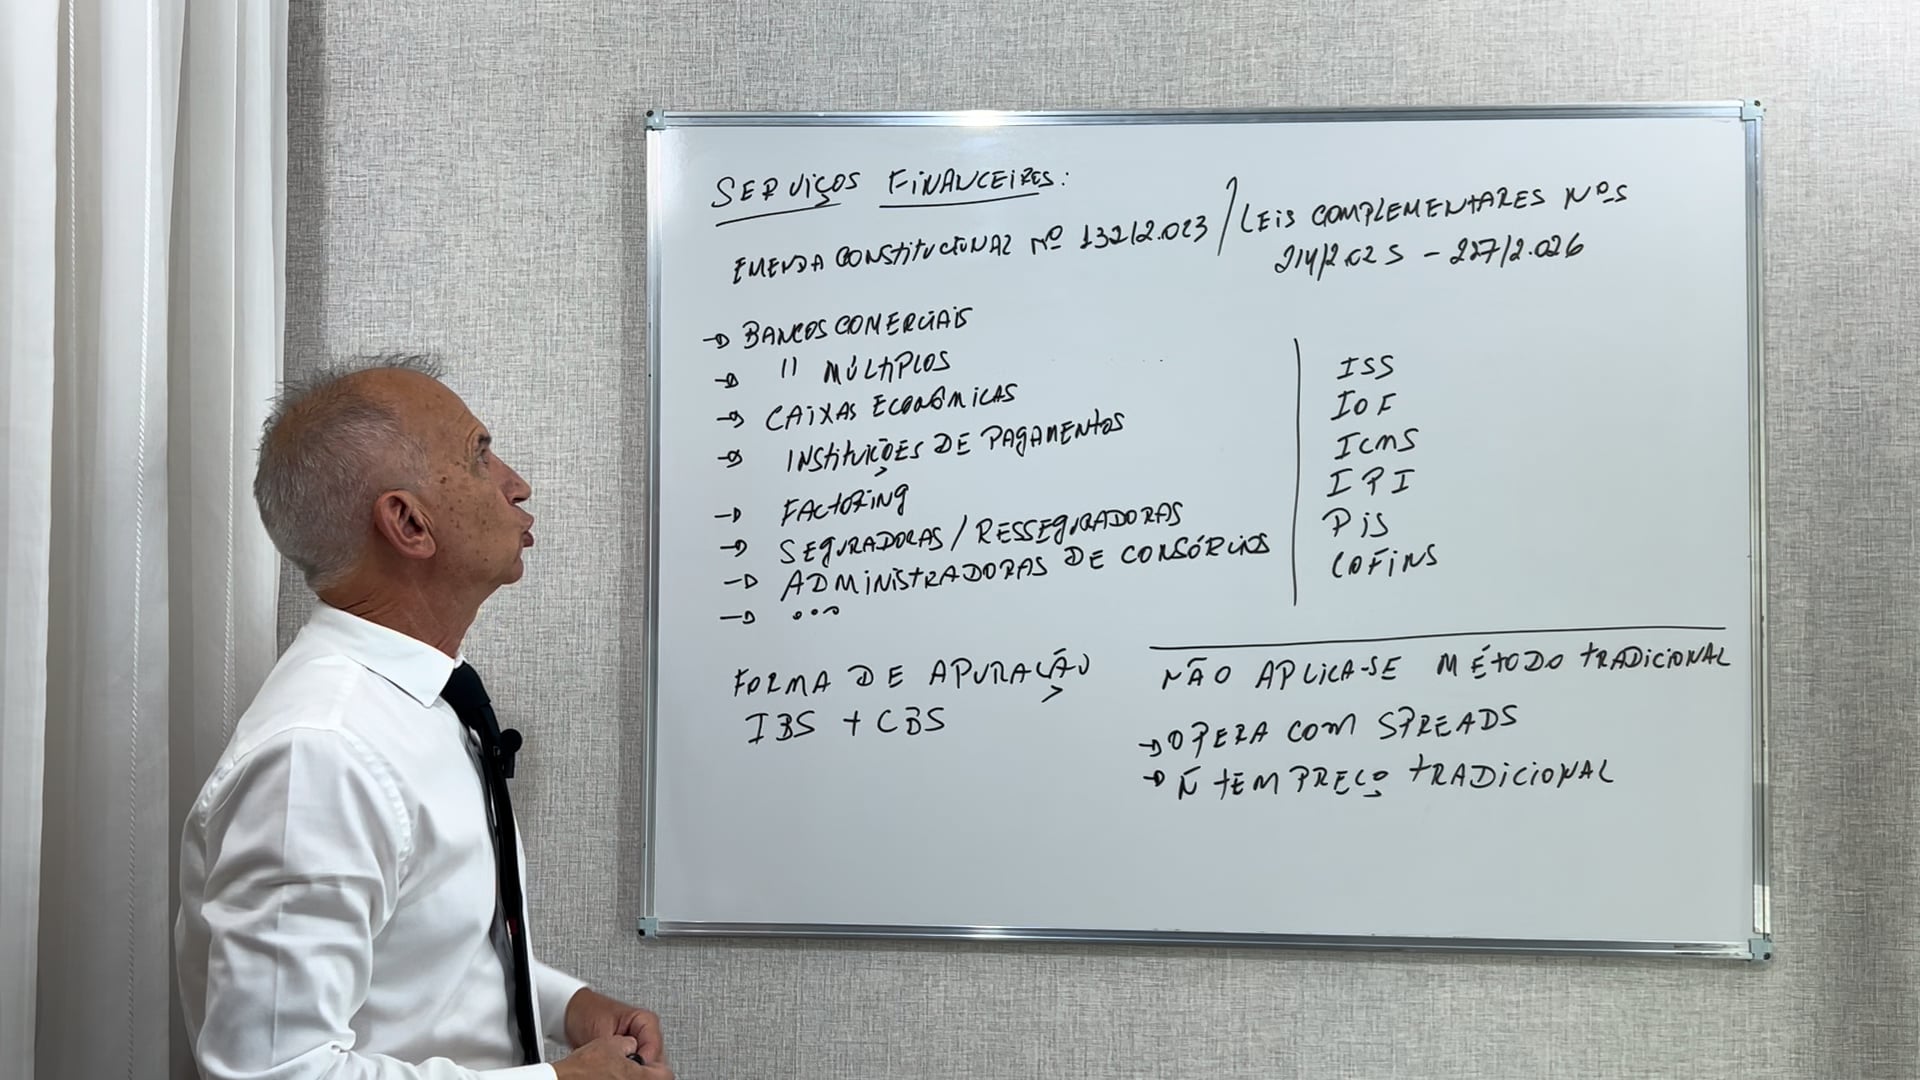 SERVIÇOS FINANCEIRES:
EMENDA CONSTITUCIONAL Nº 132/2.023 / LEIS COMPLEMENTARES Nºs
214/2.025 - 227/2.026
→ BANCOS COMERCIAIS
→ " MÚLTIPLOS
→ CAIXAS ECONÔMICAS
→ INSTITUIÇÕES DE PAGAMENTOS
→ FACTORING
→ SEGURADORAS / RESSEGURADORAS
→ ADMINISTRADORAS DE CONSÓRCIOS
→ ...
ISS
IOF
ICMS
IPI
PIS
COFINS
FORMA DE APURAÇÃO
IBS + CBS
NÃO APLICA-SE MÉTODO TRADICIONAL
→ OPERA COM SPREADS
→ Ñ TEM PREÇO TRADICIONAL